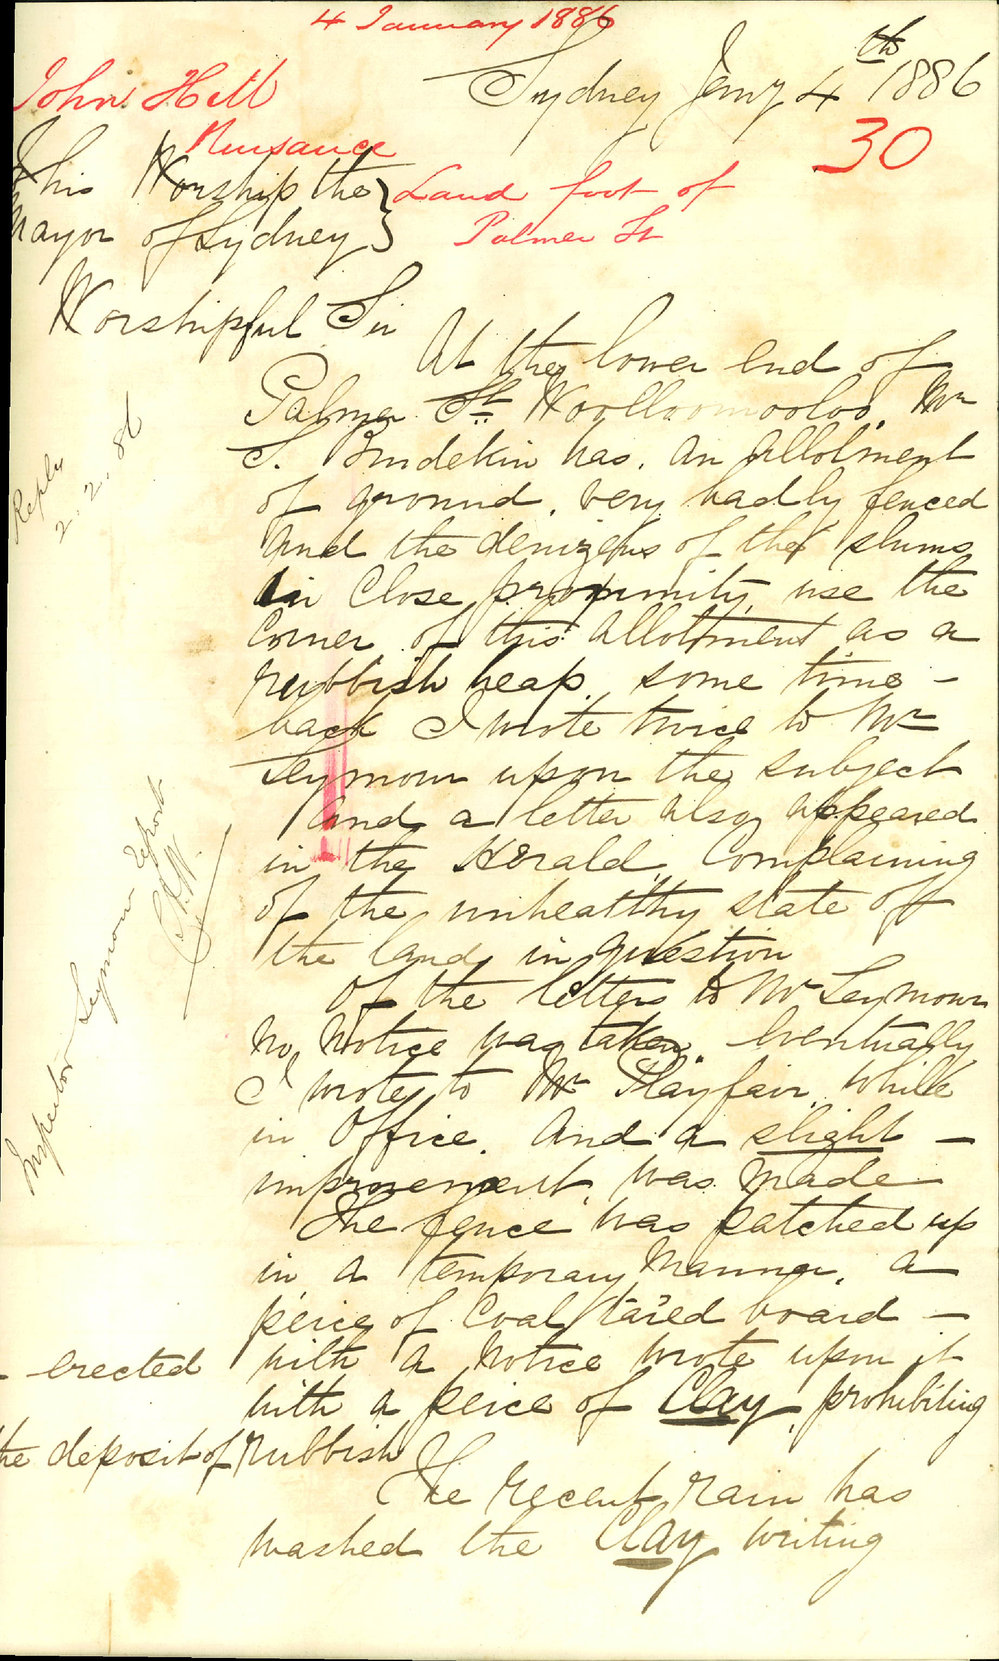 4 January 1886
Sydney Jany 4th 1886
John Hill
30
Nuisance
Land foot of
Palmer St
His Worship the
Mayor of Sydney
Worshipful Sir
At the lower end of
Palmer St Woolloomooloo, Mr
S. Burdekin has. an allotment
of ground, very badly fenced
and the denizens of the slums
in Close proximity use the
corner of this allottment as a
rubbish heap. some time -
back I wrote twice to Mr
Seymour upon the subject
and a letter also appeared
in the Herald, Complaining
of the unhealthy state of
the land in question
Of the letters to Mr Seymour
no notice was taken. eventually
I wrote to Mr Playfair, while
in Office. and a slight -
improvement, was made
The fence was patched up
in a temporary manner, a
peice of Coal tared board -
- erected with a notice wrote upon it
with a peice of Clay, prohibiting
the deposit of rubbish
The recent rain has
washed the Clay writing
Reply
2.2.86
Inspector Seymour report